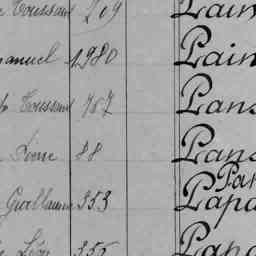 Toussaint 209 Pain
manuel 1980 Pain
Toussaint 787 Pans
88 Pans
Pan
Guillaume 353 Papa
Léon 355 Papa